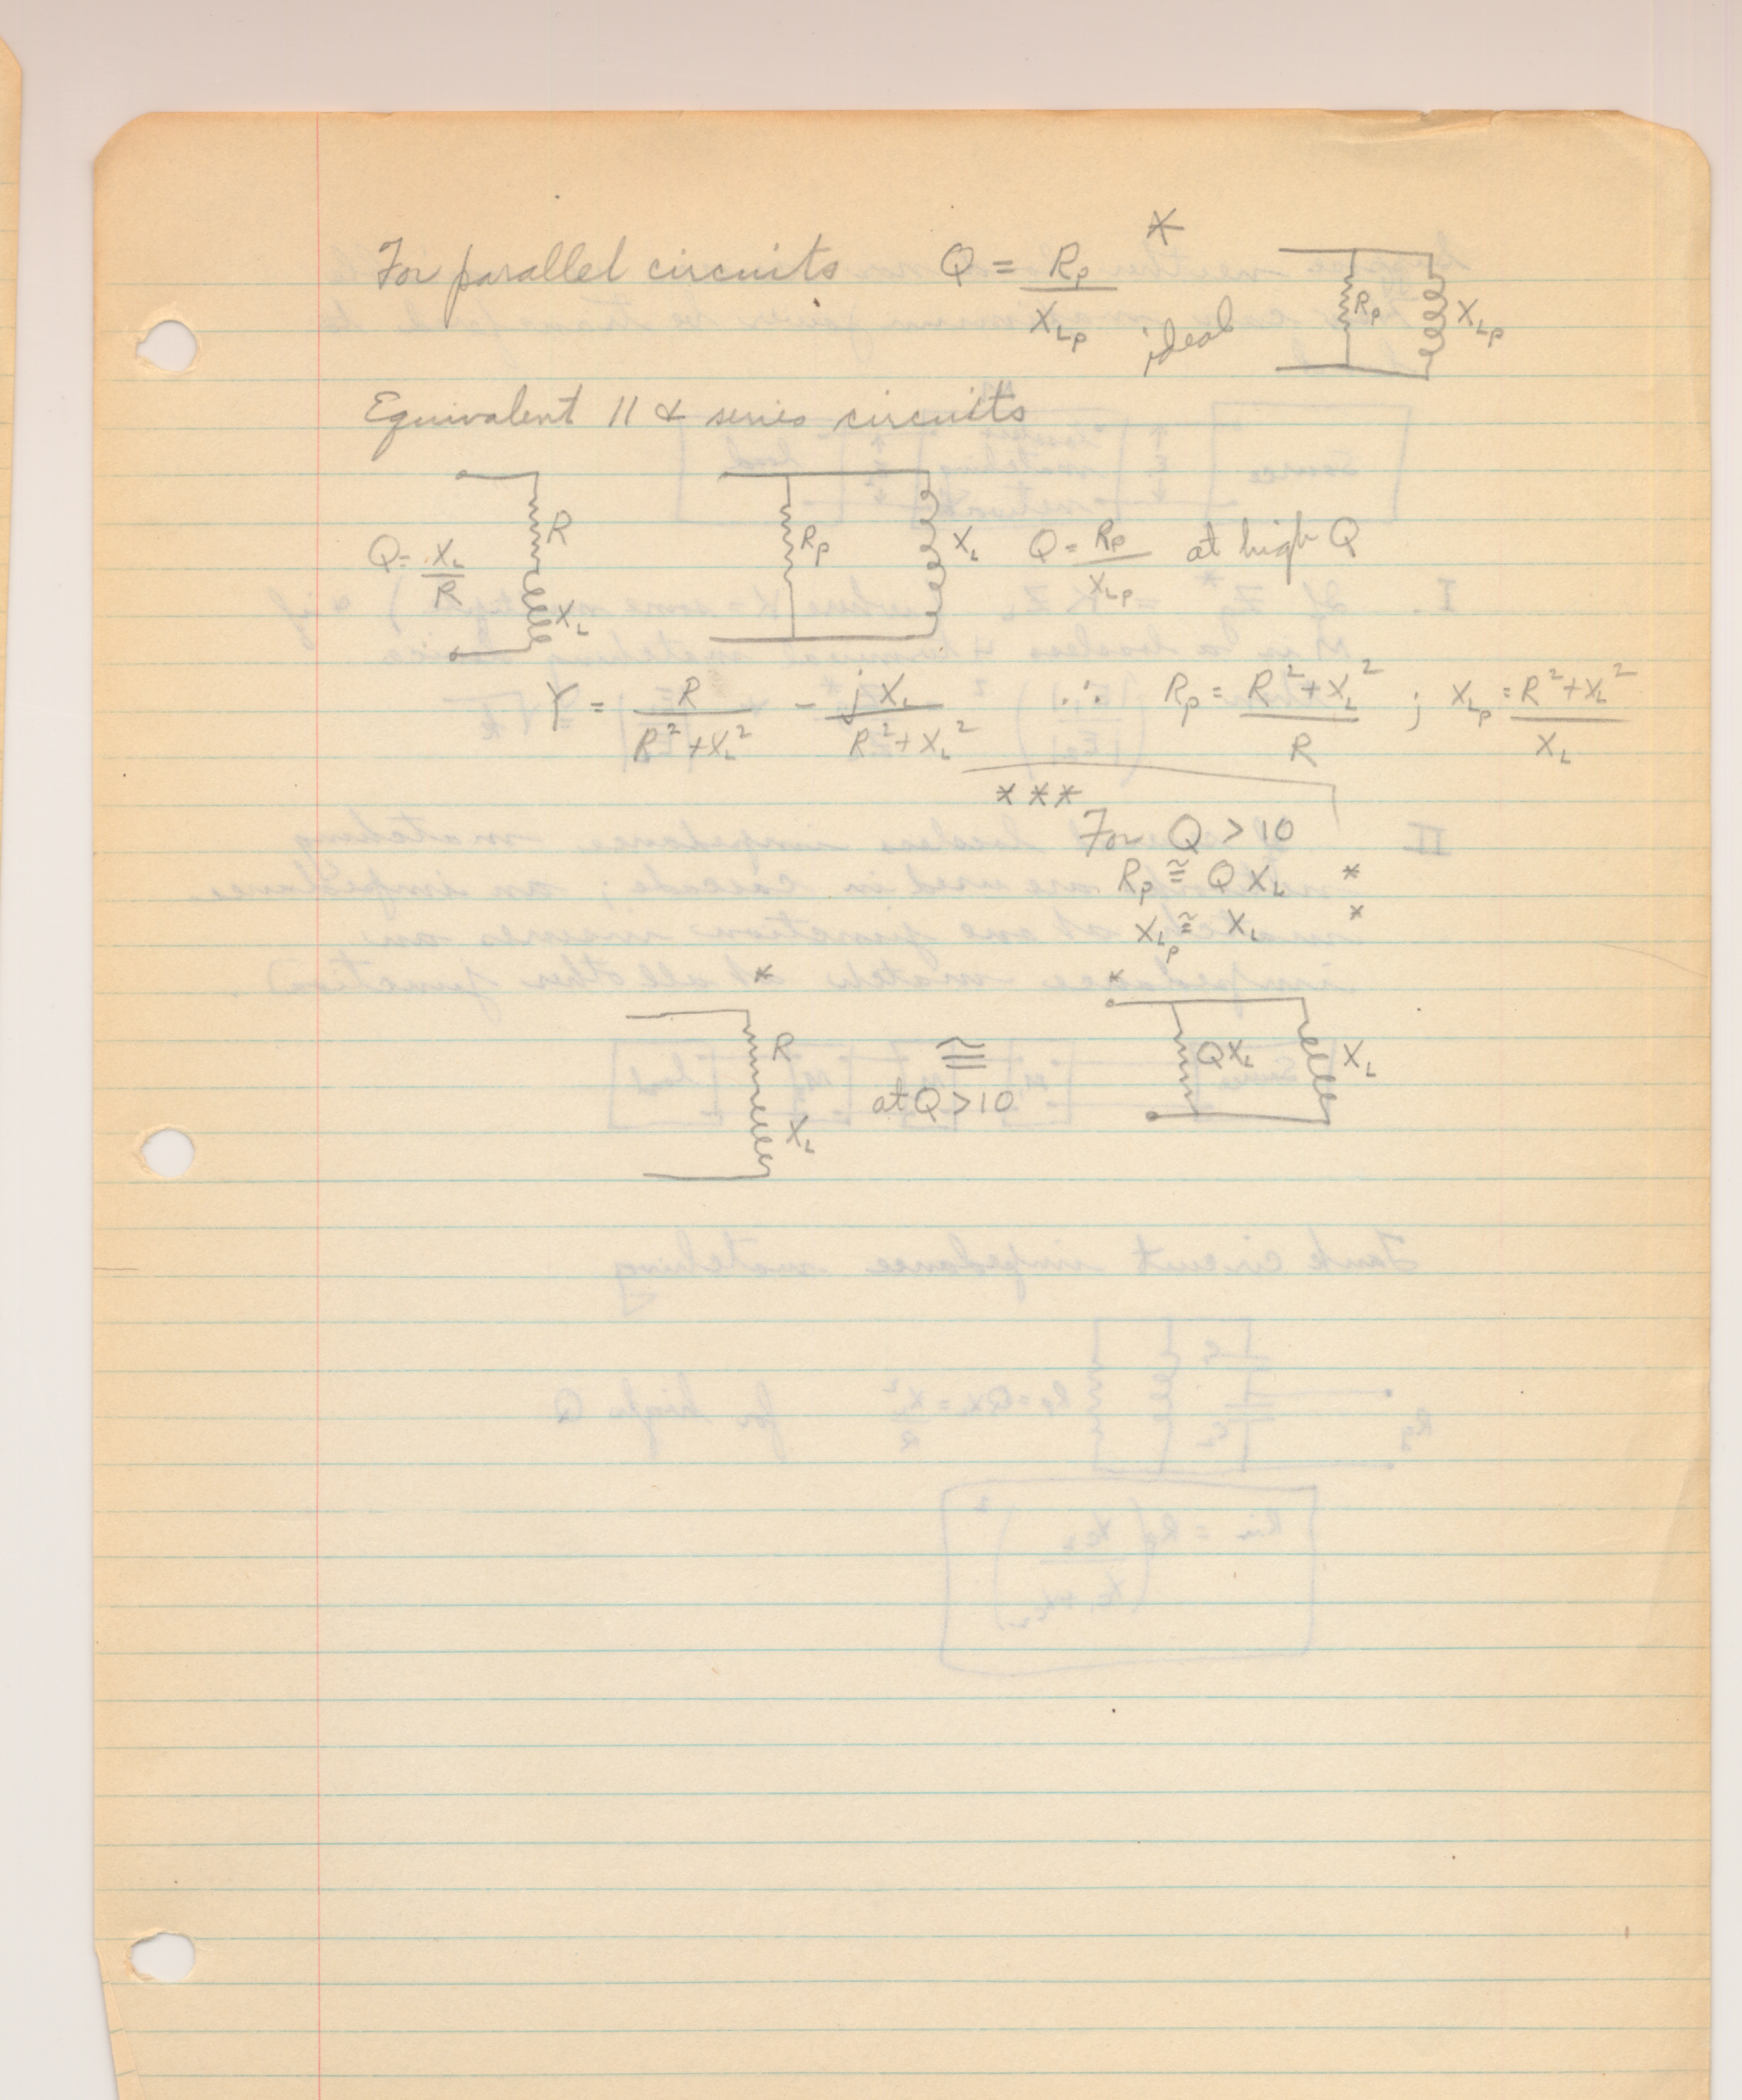 For parallel circuits Q = Rp / XLp * ideal Rp XLp
Equivalent || & series circuits
Q = XL / R R XL Rp XL Q = Rp / XLp at high Q
Y = R / R² + XL² - jXL / R² + XL² ∴ Rp = R² + XL² / R ; XLp = R² + XL² / XL
***
For Q > 10
Rp ≅ QXL *
XLp ≅ XL *
* R XL ≅ at Q > 10 * QXL XL